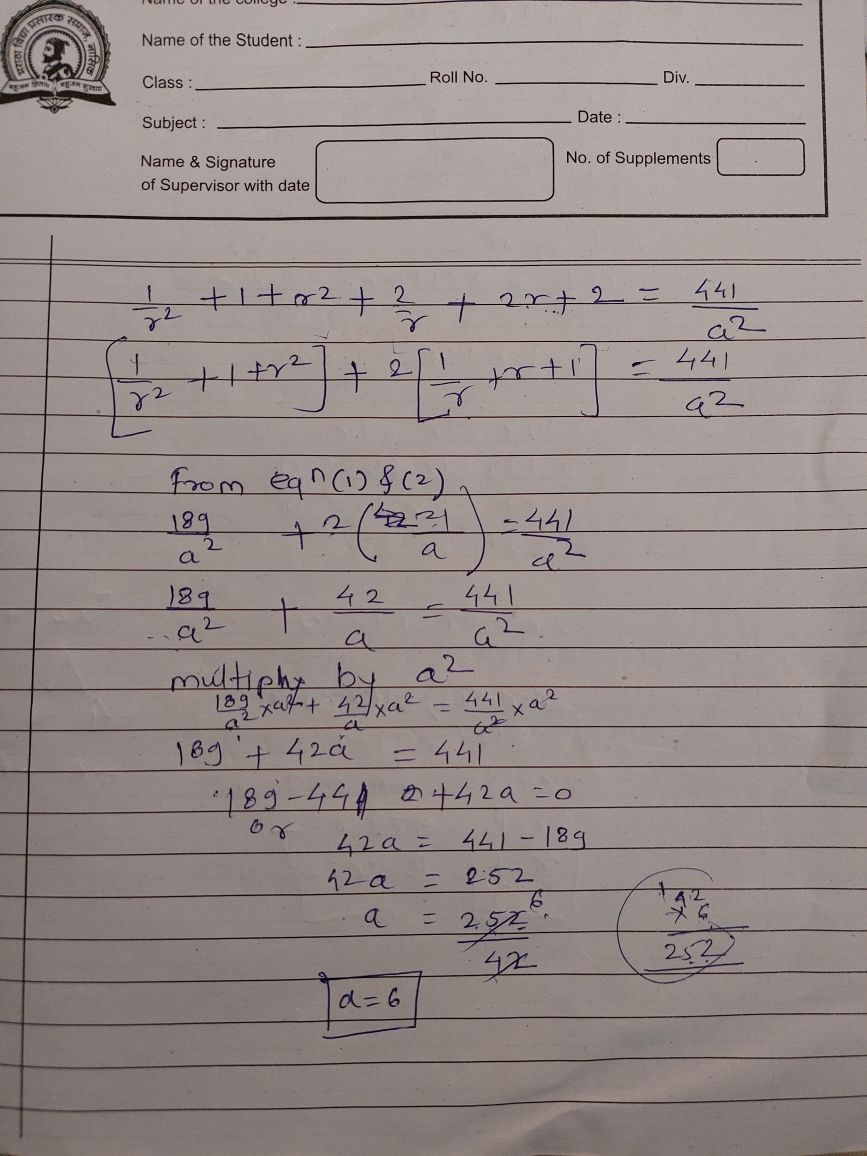 Name of the college :
Name of the Student :
Class : Roll No. Div.
Subject : Date :
Name & Signature
of Supervisor with date
No. of Supplements
मराठा विद्या प्रसारक समाज, नासिक
1/r² + 1 + r² + 2/r + 2r + 2 = 441/a²
[1/r² + 1 + r²] + 2[1/r + r + 1] = 441/a²
from eqⁿ (1) & (2)
189/a² + 2(21/a) = 441/a²
189/a² + 42/a = 441/a²
multiply by a²
189/a² × a² + 42/a × a² = 441/a² × a²
189 + 42a = 441
189 - 441 + 42a = 0
or
42a = 441 - 189
42a = 252
a = 252/42 6
1
42
× 6
252
a = 6